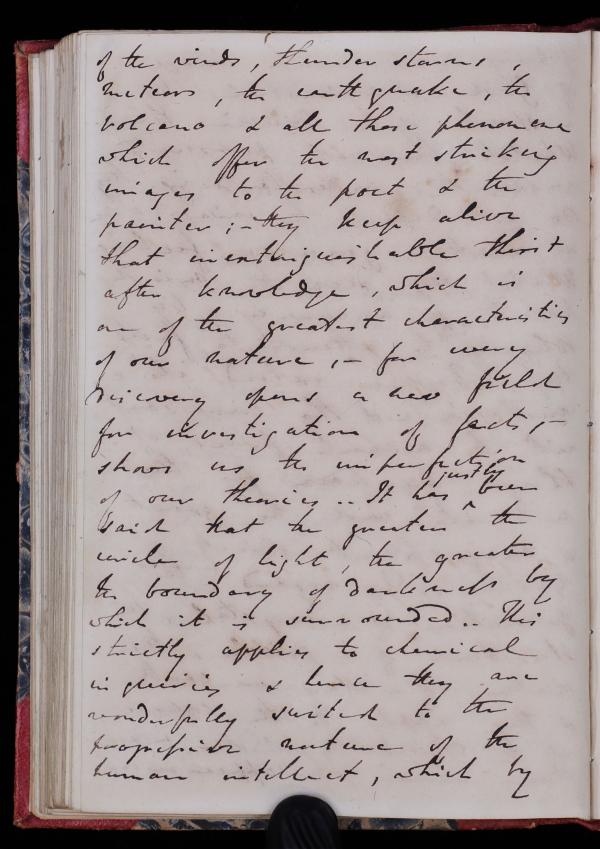 of the winds, thunder storms,
meteors, the earthquake, the
volcano & all those phenomena
which offer the most striking
images to the poet & the
painter; – they keep alive
that inextinguishable thirst
after knowledge, which is
one of the greatest characteristics
of our nature, – for every
discovery opens a new field
for investigation of facts, –
shows us the imperfection
of our theories .. It has ^ justly been
said that the greater the
circle of light, the greater
the boundary of darkness by
which it is surrounded .. This
strictly applies to chemical
inquiries & hence they are
wonderfully suited to the
progressive nature of the
human intellect, which by